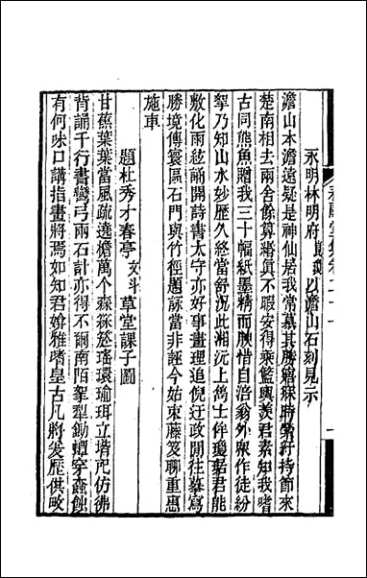 永明林明府 以澹山石刻見示
澹山本澹遠疑是神仙居我常慕其勝寤寐時縈紆持節來
楚南相去兩舍餘算緡真不暇安得乘籃輿羨君素知我嗜
古同熊魚贈我三十幅紙墨精而腴惜自涪翁外 作徒紛
挐乃知山水妙歷久終當舒況此湘沅上喬士侔瓊 君能
敷化雨絃誦開詩書太守亦好事畫理追倪迂政閒往摹寫
勝境傳寰區石門與竹徑題詠當非誣今始束藤笈聊重惠
施車
題杜秀才春亭文斗草堂課子圖
甘蕉葉葉當風疏遶檐萬个森 筡瑤環瑜珥立堦 仿彿
背誦千行書彎弓兩石計亦得不爾南陌挈犂鋤蟫穿蠹蝕
有何味口講指畫將焉如知君媕雅嗜皇古凡將爰歷供畋